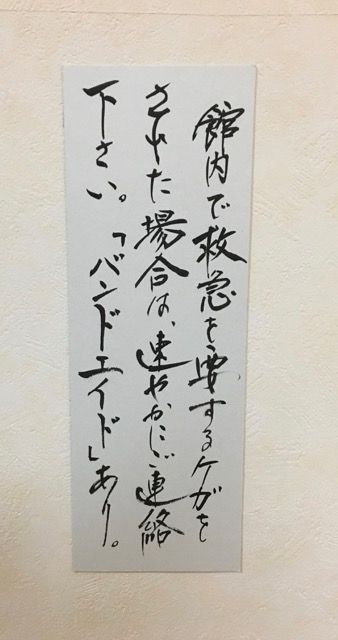 館内で救急を要するケガを
された場合は、速やかにご連絡
下さい。「バンドエイド」あり。